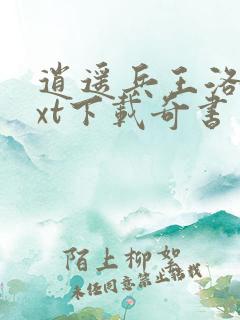 逍遥兵王洛
xt下载奇书
陌上柳絮
未经同意禁止转载